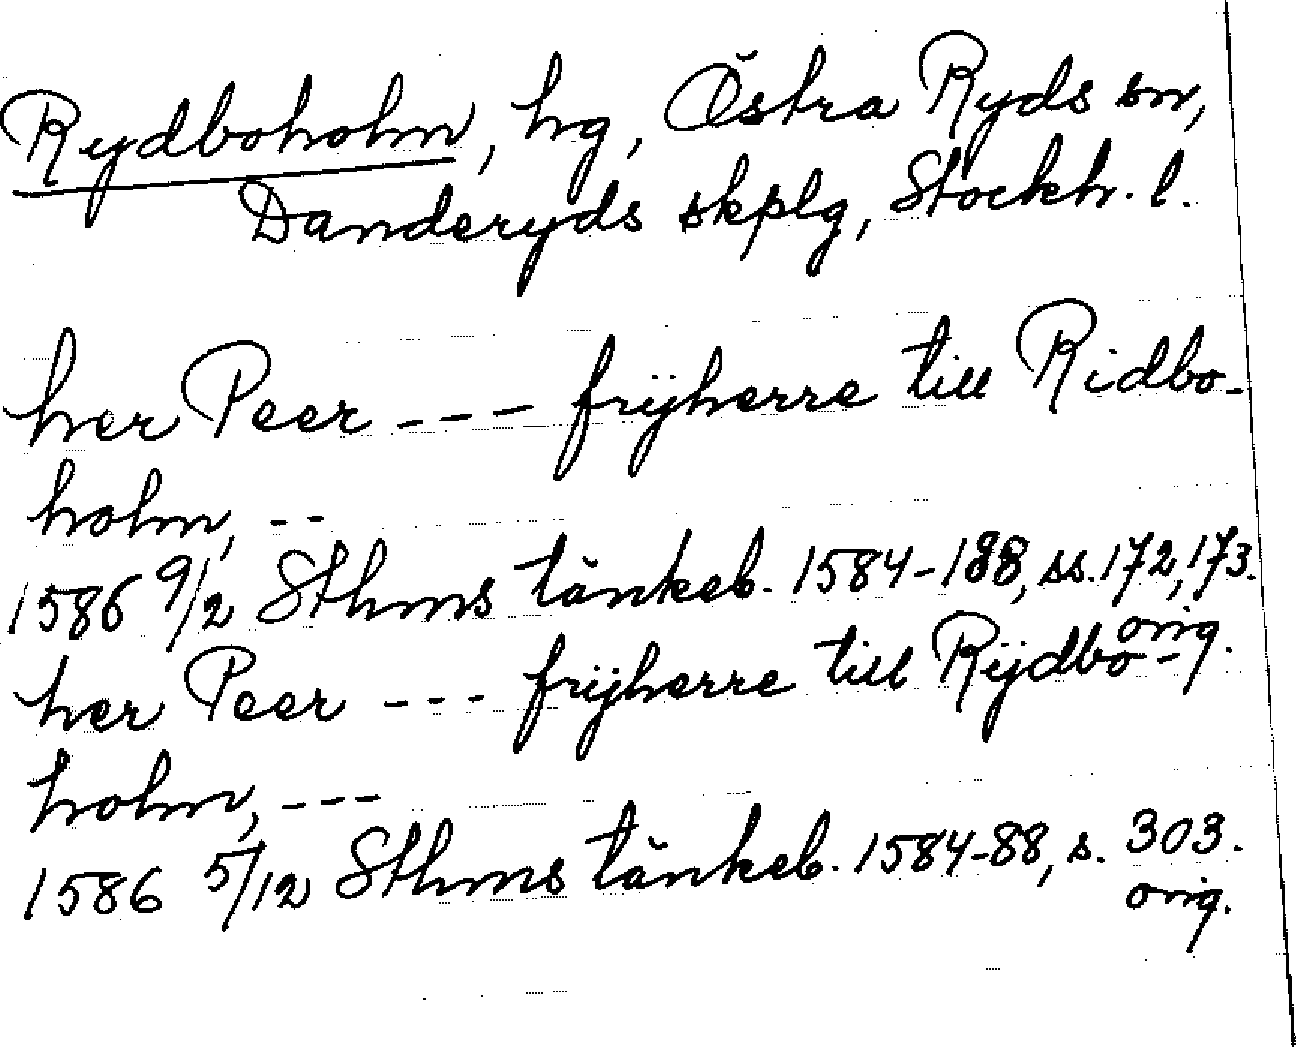 Rydboholm, hg, Östra Ryds sn,
Danderyds skplg, Stockh. l.
her Peer --- frijherre till Ridbo-
holm, --
1586 9/2 Sthms tänkeb. 1584-188, ss. 172, 173.
orig.
her Peer --- frijherre till Rijdbo-
holm, ---
1586 5/12 Sthms tänkeb. 1584-88, s. 303.
orig.